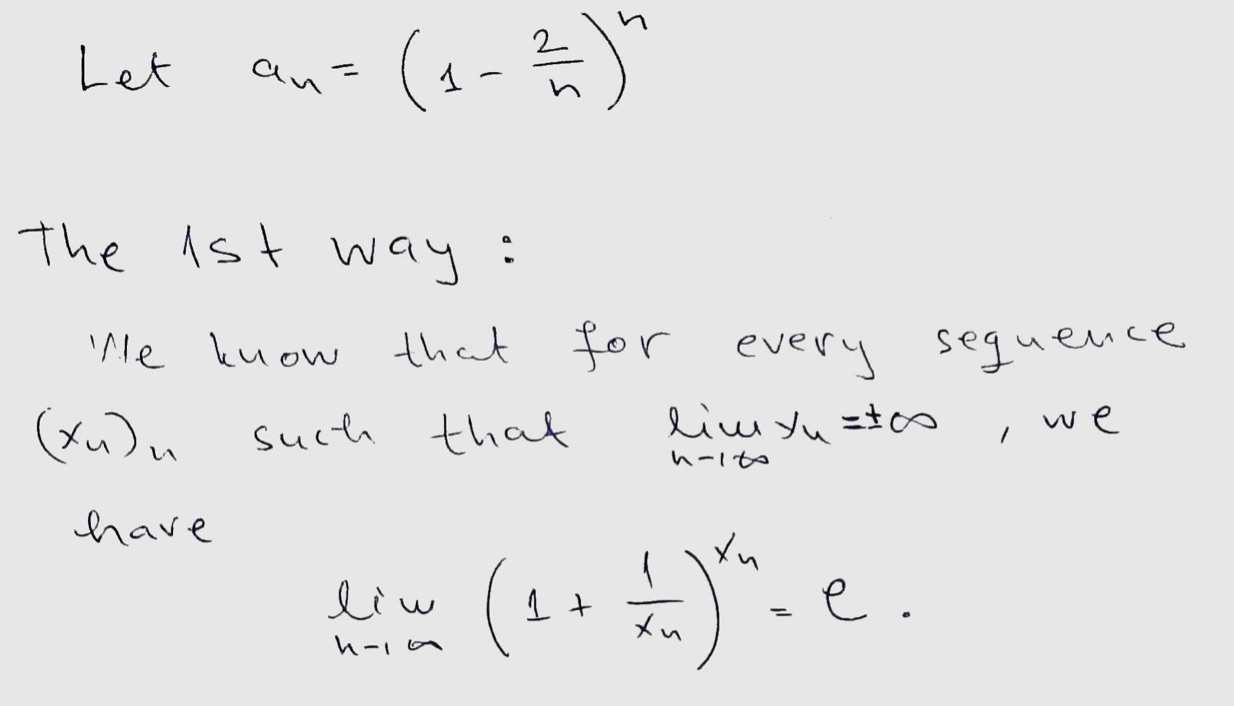 Let aₙ = (1 - 2/n)ⁿ
The 1st way :
We know that for every sequence
(xₙ)ₙ such that lim xₙ = ±∞ , we
n→∞
have
lim (1 + 1/xₙ)^xₙ = e .
n→∞